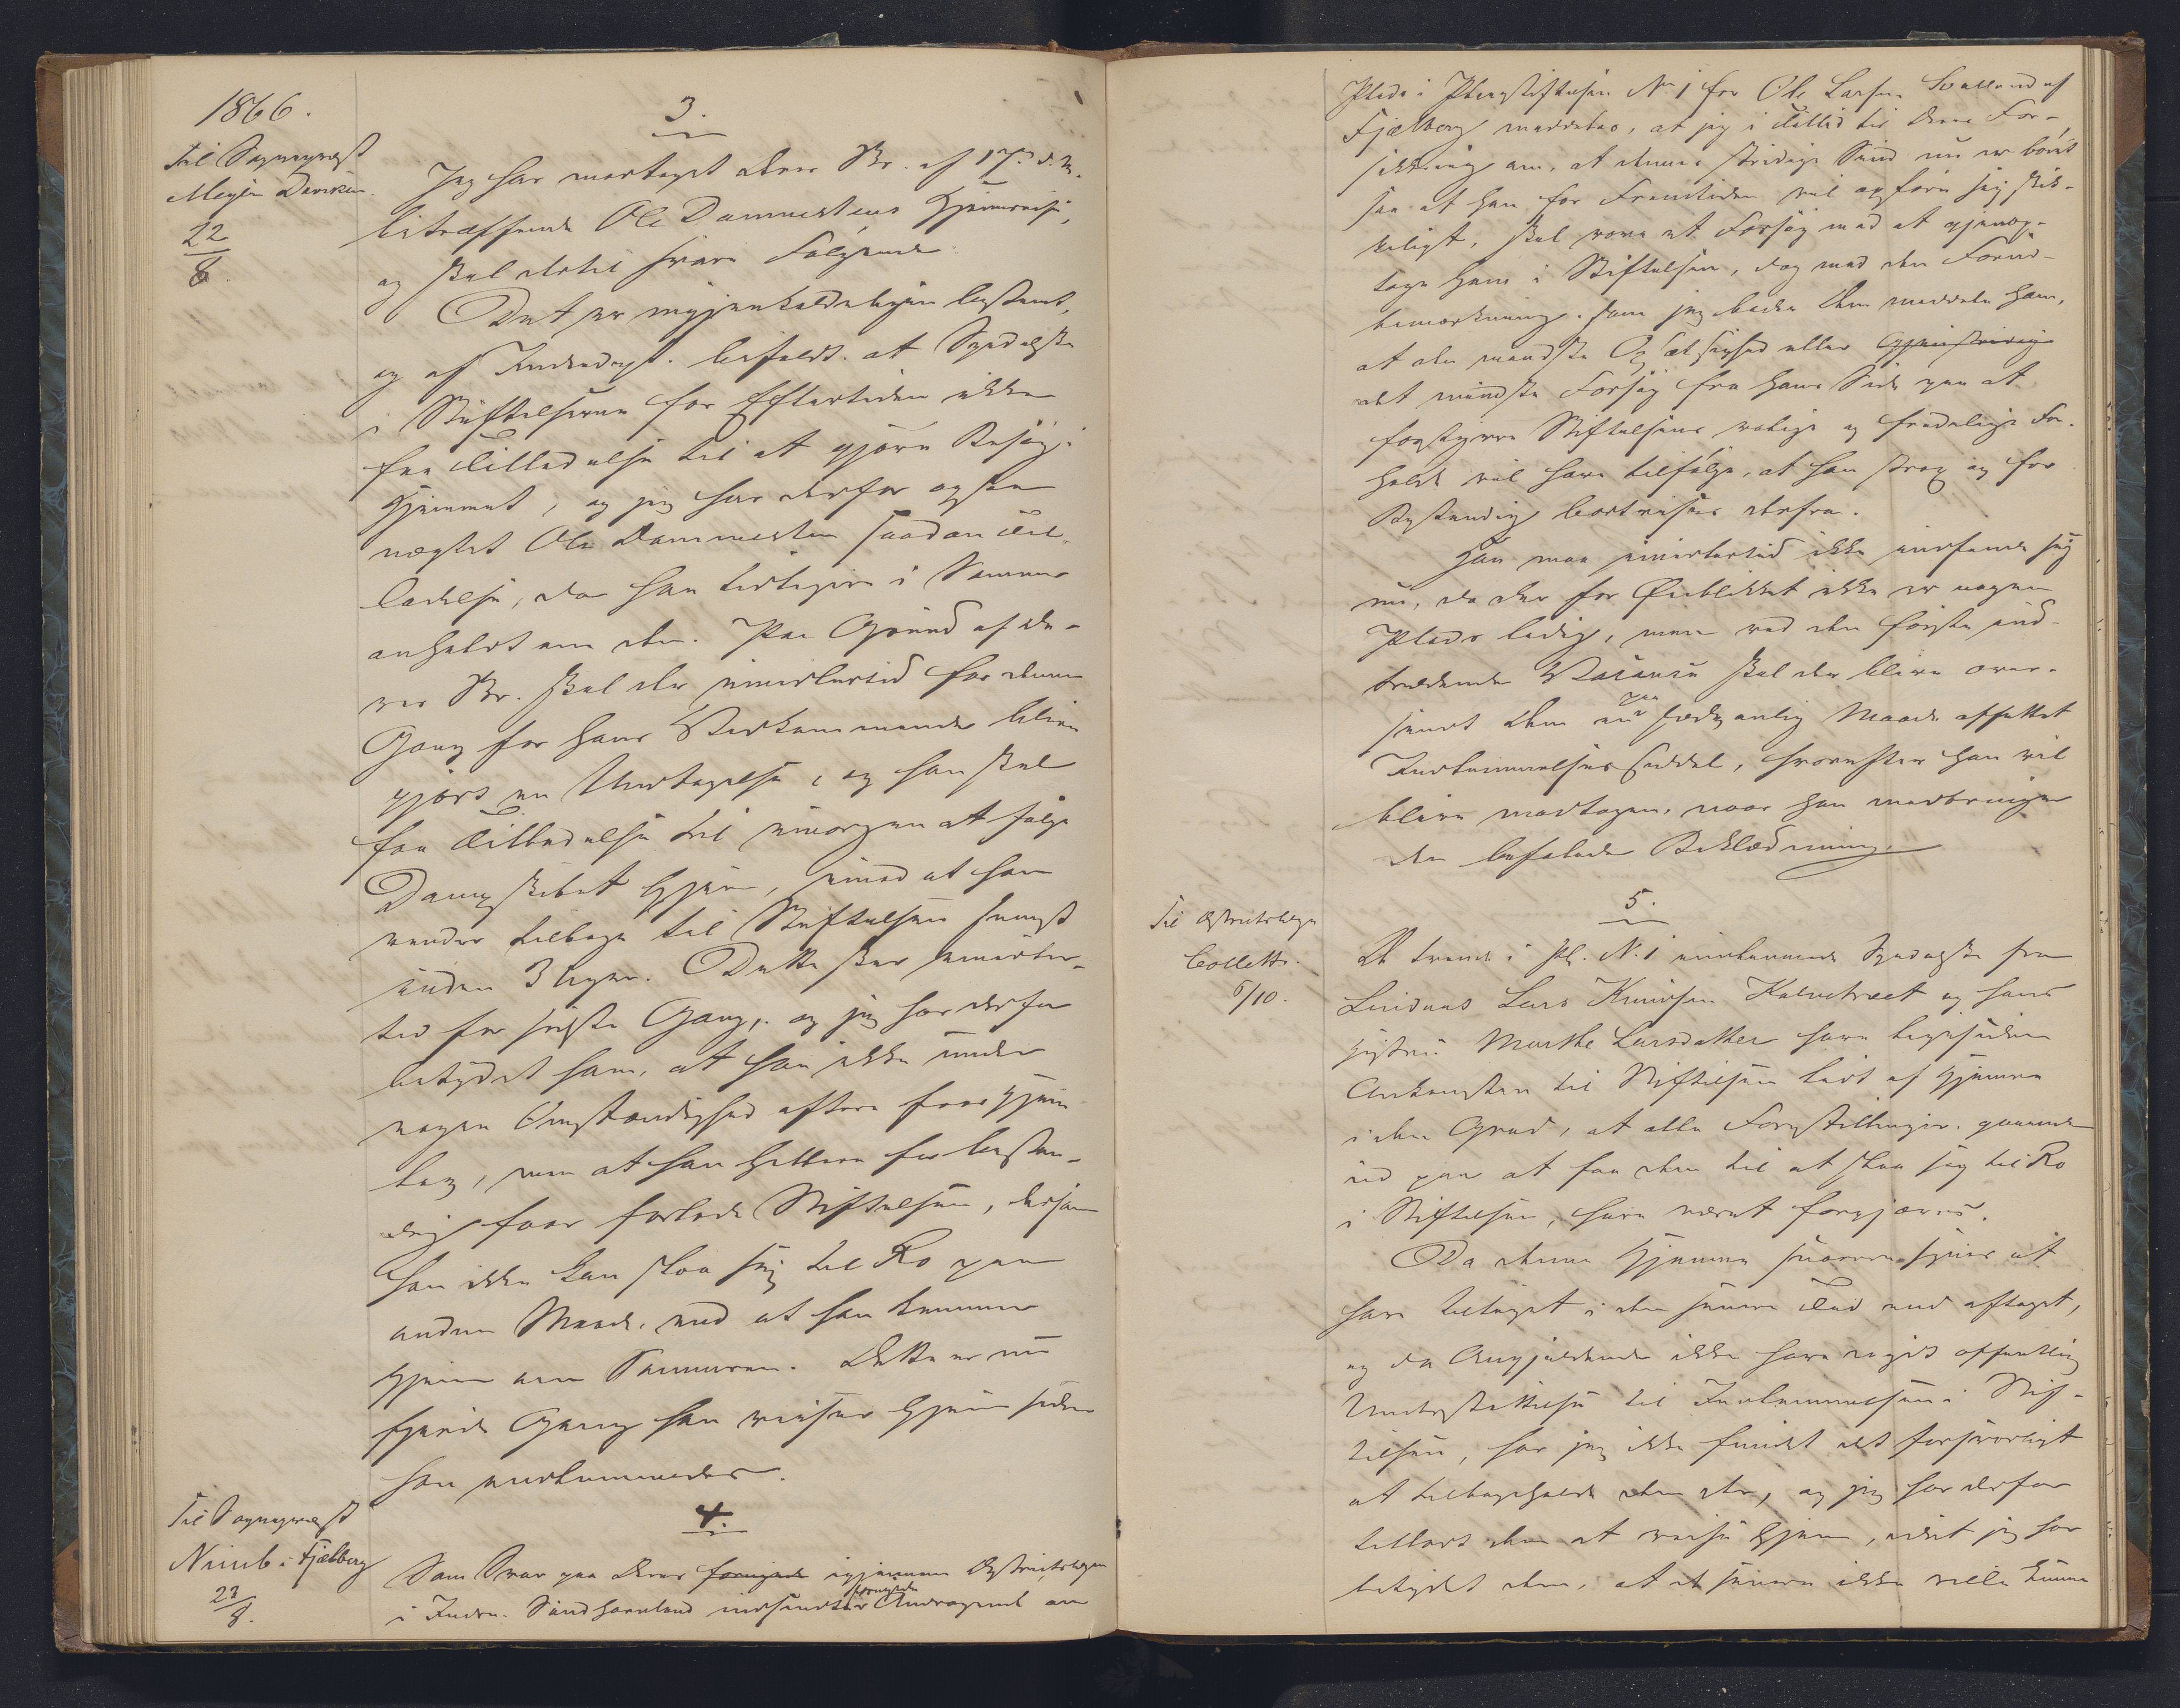 1866.
Til Sogneprest
Meyer Dericksen.
22/8
3.
Jeg har modtaget Deres Br. af 17. d. M.
betræffende Ole Dammestens Hjemreise,
og skal dertil svare Følgende:
Det er engjenkaldeligen bestemt,
og af Indredept. bifaldt at Spedalske
i Stiftelserne for Eftertiden ikke
faa Tilladelse til at gjøre Besøg i
Hjemmet, og jeg har derfor ogsaa
nægtet Ole Dammesten saadan Til-
ladelse, da han tidligere i Sommer
anholdt om den. Paa Grund af De-
res Br. skal der imidlertid for denne
Gang for hans Vedkommende blive
gjort en Undtagelse, og han skal
faa Tilladelse til imorgen at følge
Dampskibet hjem, imod at han
vender tilbage til Stiftelsen senest
inden 3 Uger. Dette sker imidler-
tid for sidste Gang, og jeg har derfor
betydet ham, at han ikke under
nogen Omstændighed oftere faar Hjem-
lov, men at han hellere for bestan-
dig faar forlade Stiftelsen, dersom
han ikke kan slaa sig til Ro paa
anden Maade, end at han kommer
hjem om Sommeren. Dette er nu
fjerde Gang han reiser hjem siden
han indkommedes.
Til Sogneprest
Nimb i Fjælberg
23/8.
4.
Som Svar paa Deres fornyede igjennem Distriktslægen
i Indre Søndhordland indsendte fornyede Andragende om
Plads i Pleiestiftelsen No 1 for Ole Larsen Svalland af
Fjælberg meddeles, at jeg i Tillid til Deres For-
sikkring om, at dennes stridige Sind nu er böiet
saa at han for Fremtiden vil opføre sig skik-
keligt, skal vove et Forsøg med at gjenop-
tage ham i Stiftelsen, dog med den Forud-
bemærkning, som jeg beder Dem meddele ham,
at den mindste Opsætsighed eller Gjenstridig
det mindste Forsøg fra hans Side paa at
forstyrre Stiftelsens rolige og fredelige For-
holde vil have tilfølge, at han strax og for
Bestandig bortvises derfra.
Han maa imidlertid ikke indfinde sig
nu, da der for Øieblikket ikke er nogen
Plads ledig, men ved den første ind-
trædende Vacance skal der blive over-
sendt Dem en paa sædvanlig Maade affattet
Indlemmelsesseddel, hvorefter han vil
blive modtagen, naar han medbringer
den befalede Beklædning.
Til Distriktslæge
Collett.
6/10.
5.
De trende i Pl. N. 1 indkomne Spedalske fra
Lindaas Lars Knudsen Kalvetræet og hans
Hustru Marthe Larsdatter have ligesiden
Ankomsten til Stiftelsen lidt af Hjemve
i den Grad, at alle Forestillinger gaaende
ud paa at faa dem til at slaa sig til Ro
i Stiftelsen, have været forgjæves.
Da denne Hjemve snarere synes at
have tiltaget i den senere Tid end aftaget,
og da Angjældende ikke have nydt offentlig
Understøttelse til Indlemmelsen i Stif-
telsen, har jeg ikke fundet det forsvarligt
at tilbageholde dem der, og jeg har derfor
tilladt dem at reise hjem, idet jeg har
betydet dem, at de senere ikke ville kunne